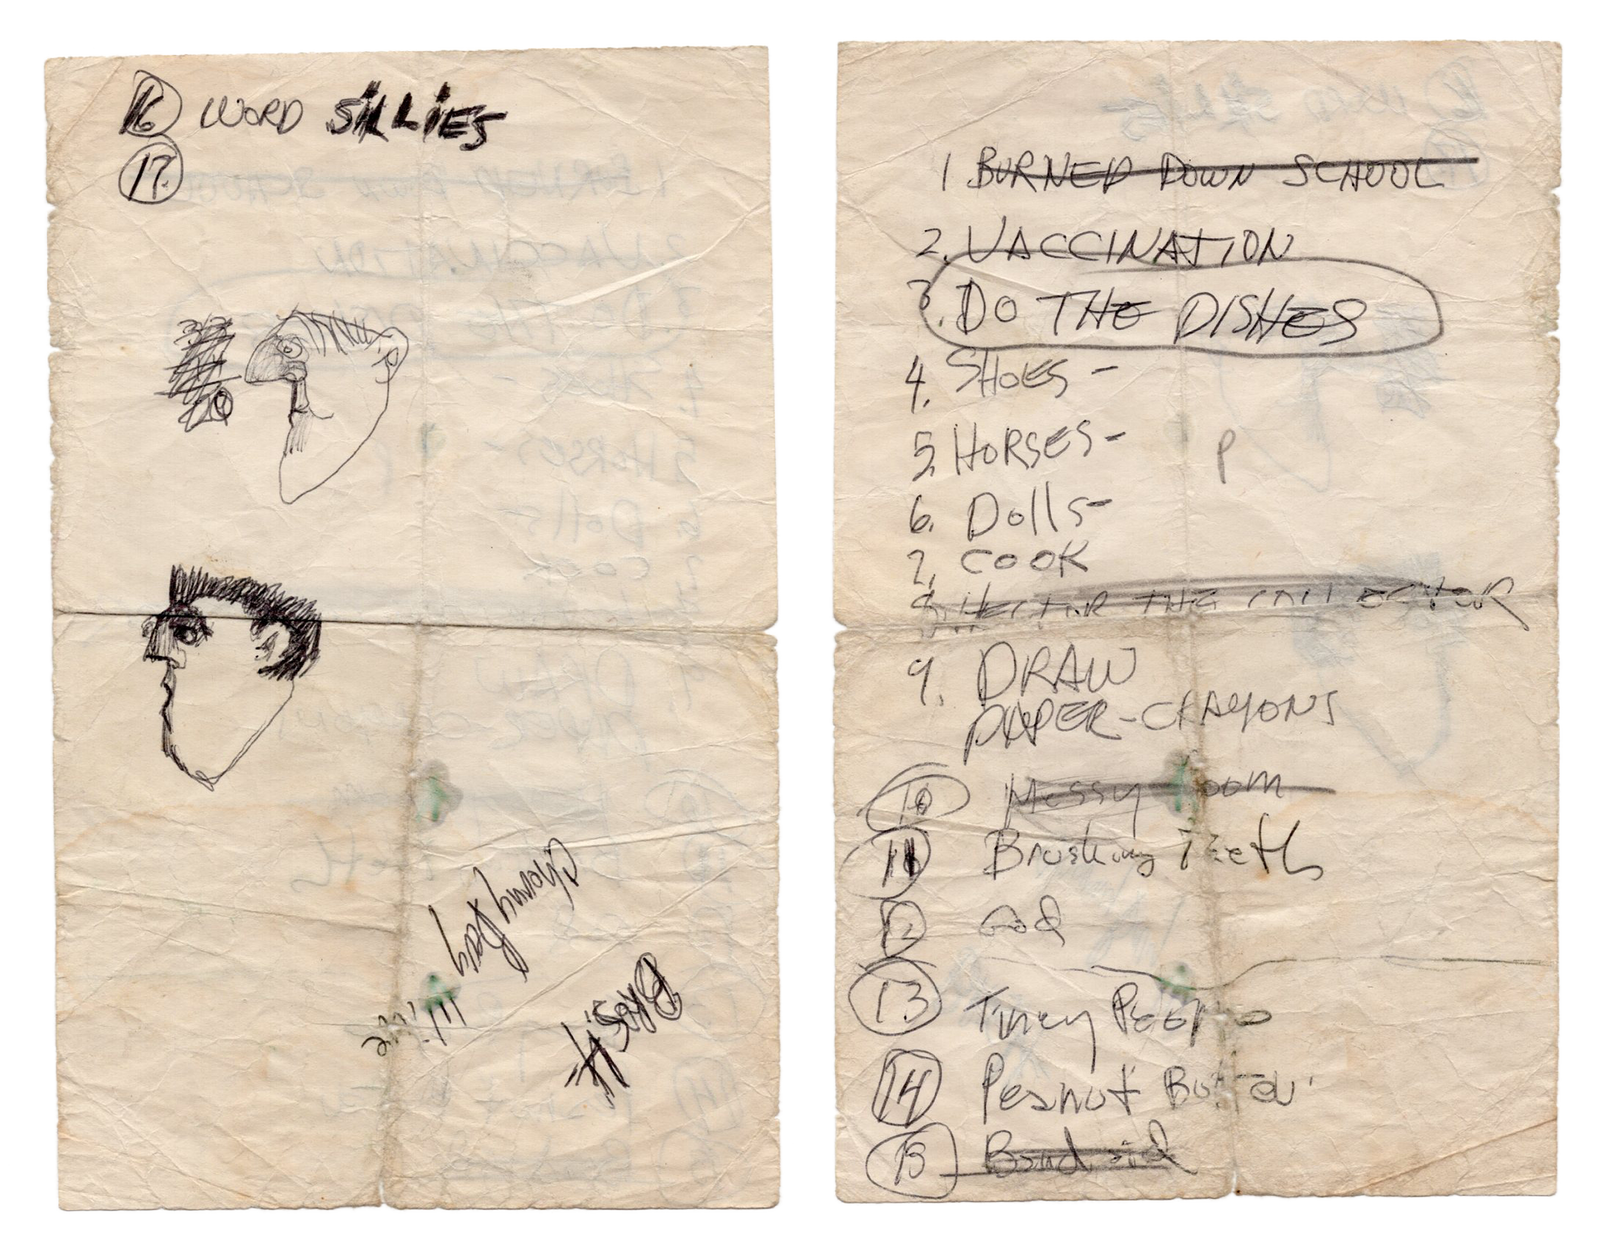 16 WORD SILLIES
17.
Johnny Pery
Write
BRASH
1 BURNED DOWN SCHOOL
2. VACCINATION
3. DO THE DISHES
4. SHOES -
5. HORSES -
P
6. Dolls -
7. COOK
8. HECTOR THE COLLECTOR
9. DRAW
PAPER-CRAYONS
10 Messy Room
11 Brushing Teeth
12 God
13 Tiney People
14 Peanut Butter
15 Band aid